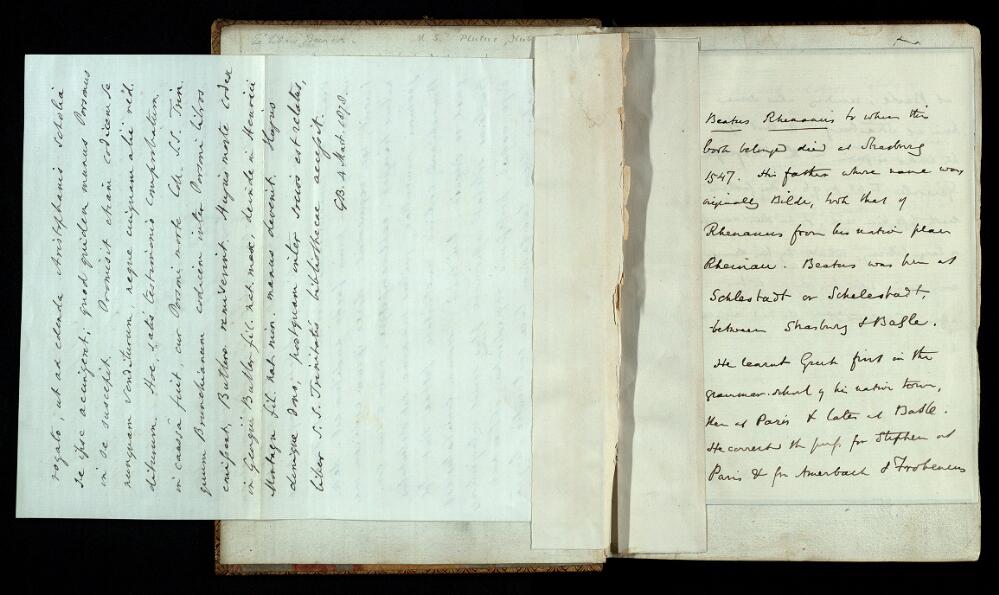 M. S. Plutus,
rogato, ut ad edenda Aristophanis scholia
se ipse accingeret; quod quidem munus Porsonus
in se suscepit. Promisit etiam codicem se
nunquam venditurum, neque cuiquam alii
diturum. Hoc, satis testimonio comprobatum,
in caussa fuit, cur Porsoni morte Coll. S.S. Trin.
quum Brunckianum codicem inter Porsoni libros
Butlero remiserint. morte codex
in Georgii Butler fil. nat. max., deinde in Henrici
Montagu fil. nat. min. manus devenit. Hujus
denique dono, postquam inter socios est relatus,
liber S. S. Trinitatis bibliothecae accepit.
GB. 4 Mart. 1878.
Beatus Rhenanus to whom this
book belonged died at Strasburg
1547. His father whose name was
originally Bilde, took that of
Rhenanus from his native place
Rheinau. Beatus was born at
Schlestadt or Schelestadt,
between Strasburg & Basle.
He learnt Greek first in the
grammar-school of his native town,
then at Paris & later at Basle.
He corrected the for Stephen at
Paris & for Amerbach & Frobenius